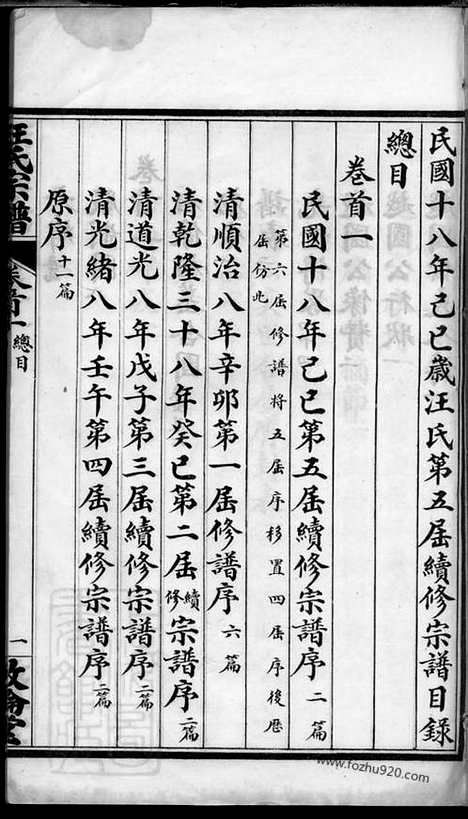 民國十八年己巳歲汪氏第五屆續修宗譜目錄
總目
卷首一
民國十八年己巳第五屆續修宗譜序二篇
第六屆修譜將五屆序移置四屆序後歷
屆仿此
清順治八年辛卯第一屆修譜序六篇
清乾隆三十八年癸巳第二屆續修宗譜序二篇
清道光八年戊子第三屆續修宗譜序二篇
清光緒八年壬午第四屆續修宗譜序二篇
原序十一篇
汪氏宗譜
卷首一總目
一
www.fozhu920.com